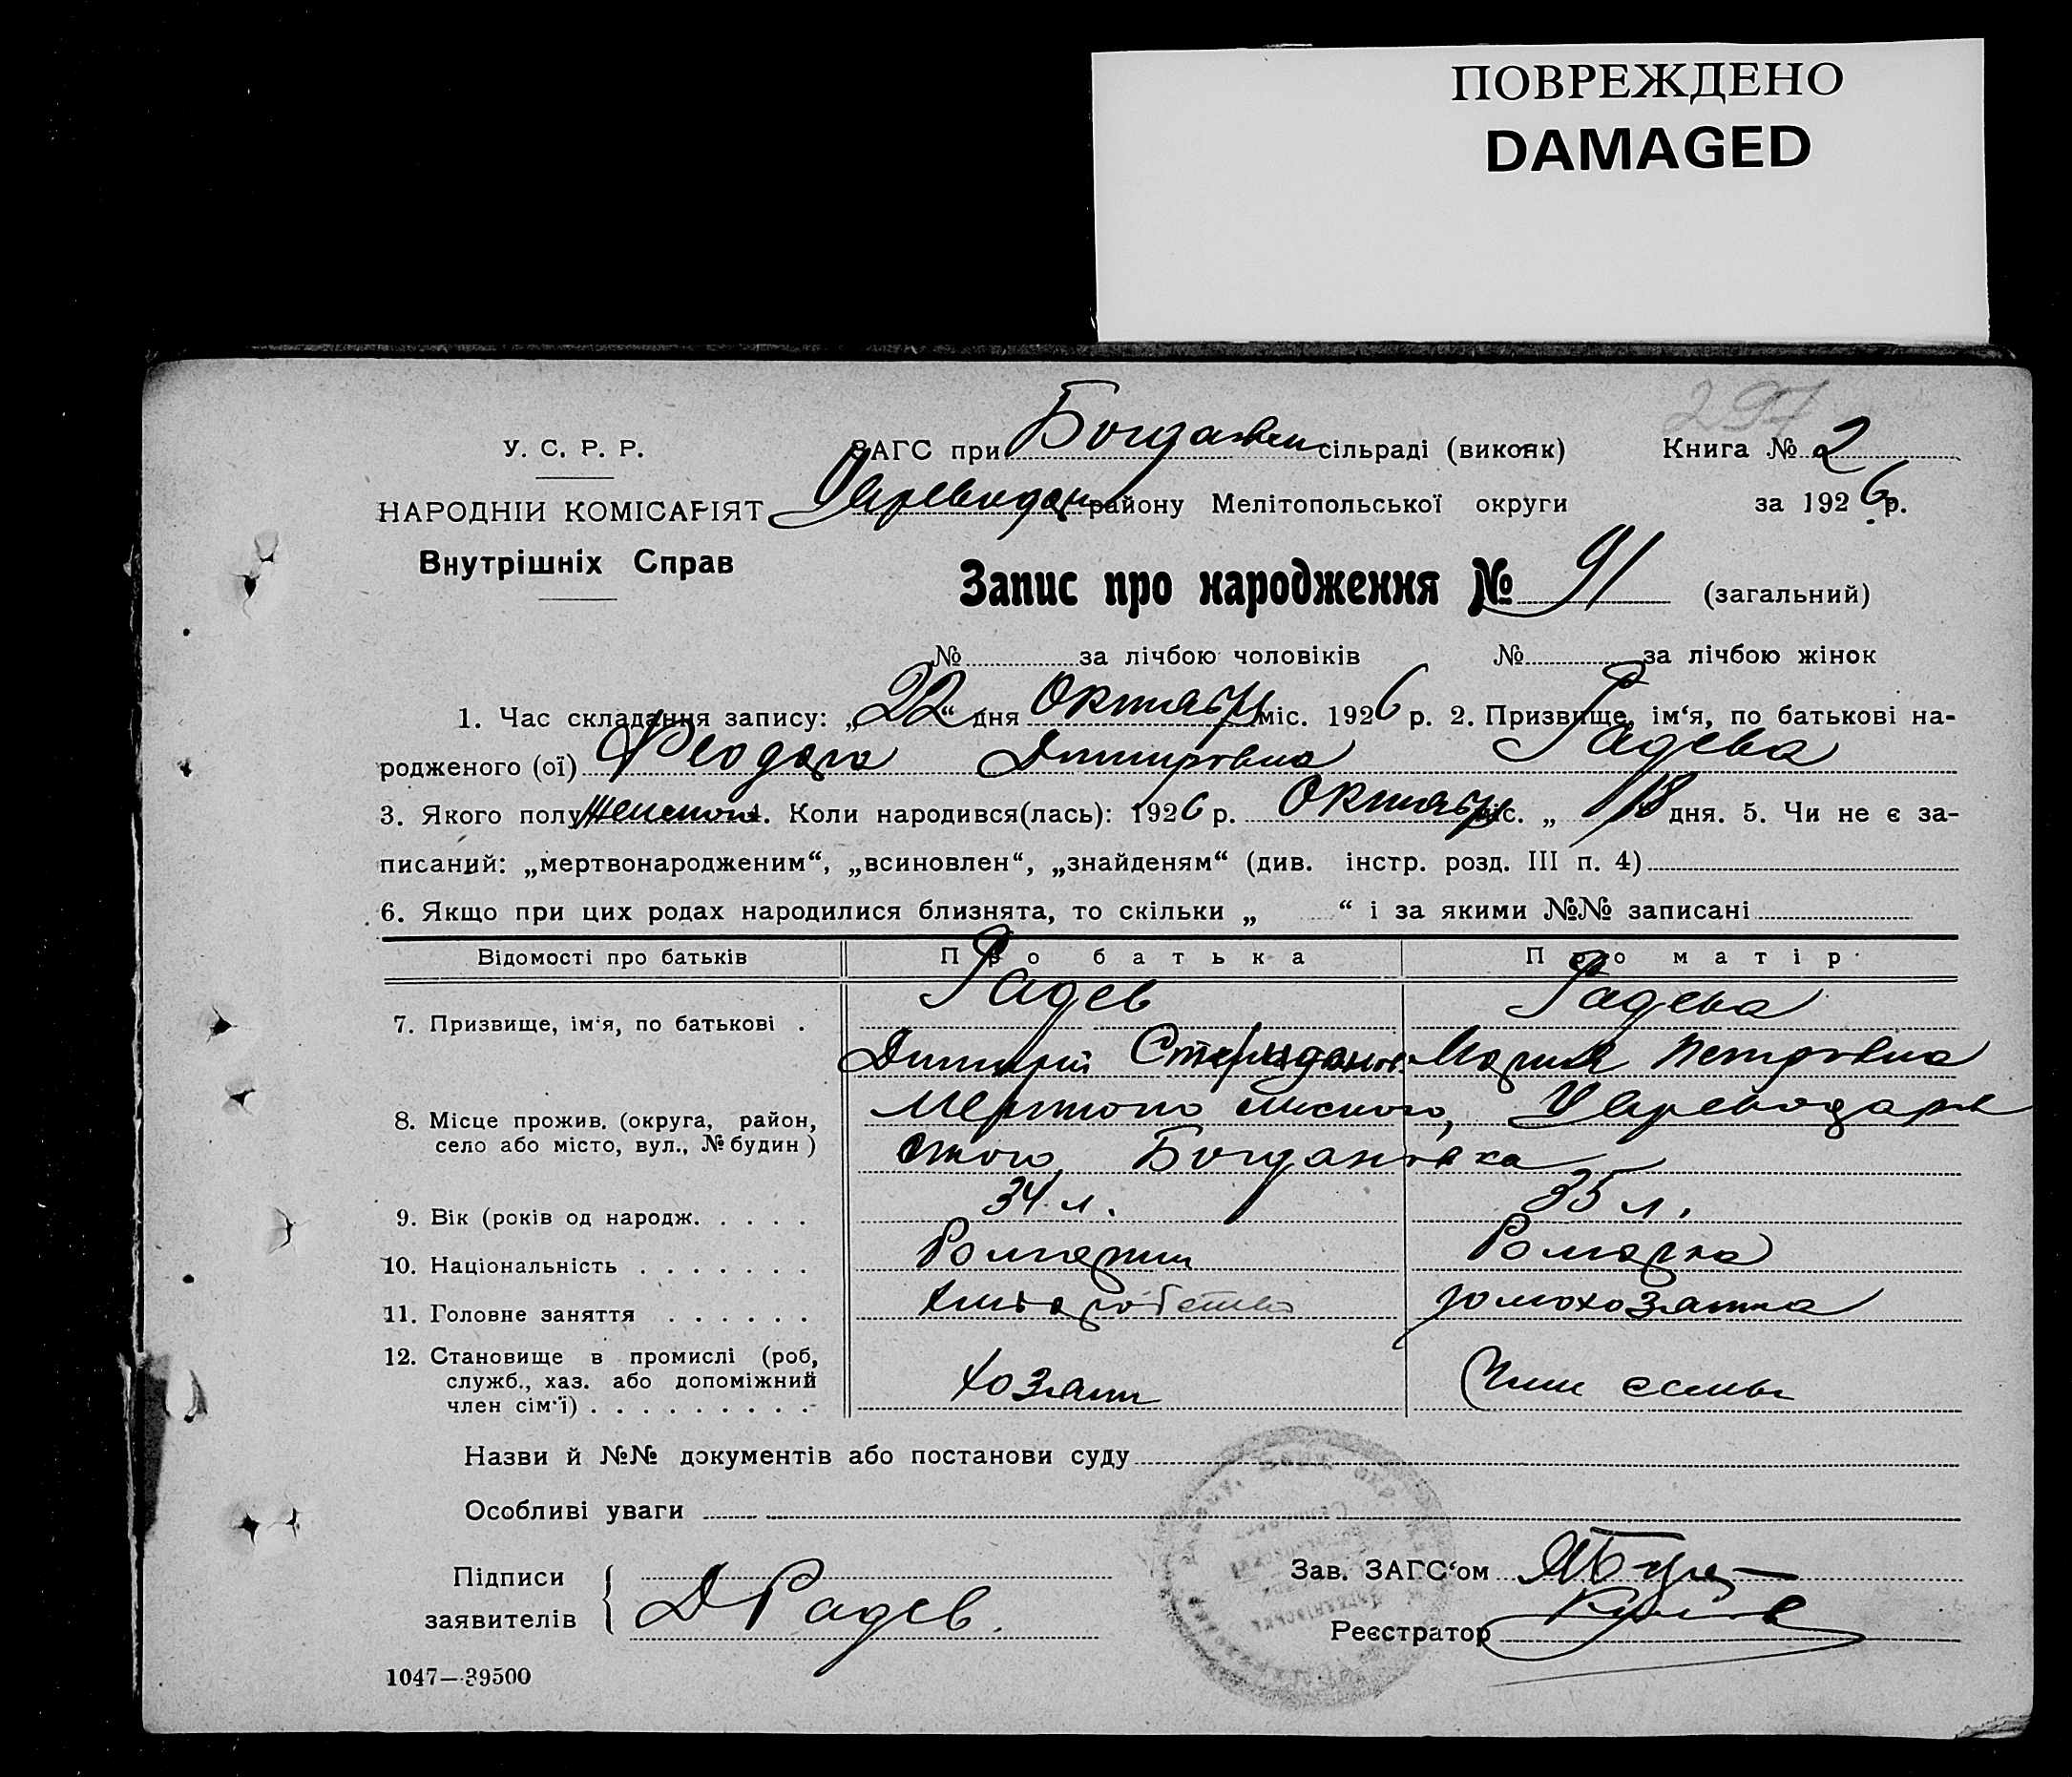 ПОВРЕЖДЕНО
DAMAGED
297
У. С. Р. Р.
ЗАГС при Богданвск сільраді (виконк)
Книга № 2
НАРОДНІИ КОМІСАРІЯТ
Царевидан району Мелітопольської округи
за 1926 р.
Внутрішніх Справ
Запис про народження № 91 (загальний)
№ за лічбою чоловіків № за лічбою жінок
1. Час складання запису: „22“ дня Октября міс. 1926 р. 2. Призвище, ім‘я, по батькові на-
родженого (ої) Феодора Дмитровна Радева
3. Якого полу Женского 4. Коли народився(лась): 1926 р. Октября міс. „ 18 дня. 5. Чи не є за-
писаний: „мертвонародженим“, „всиновлен“, „знайденям“ (див. інстр. розд. III п. 4)
6. Якщо при цих родах народилися близнята, то скільки „ “ і за якими №№ записані
Відомості про батьків Про батька Про матір
Радев Радева
7. Призвище, ім‘я, по батькові .
Дмитрий Мария Петровна
8. Місце прожив. (округа, район,
село або місто, вул., № будин )
Богдановка
9. Вік (років од народж. . . . . 34 л. 35 л.
10. Національність . . . . . . .
11. Головне заняття . . . . . . Хлиборобство домохозяйка
12. Становище в промислі (роб,
служб., хаз. або допоміжний
член сім‘ї) . . . . . . . . . хозяин Член семьи
Назви й №№ документів або постанови суду
Особливі уваги
Підписи
заявителів
Д Радев.
Зав. ЗАГС‘ом
Реєстратор
1047—39500